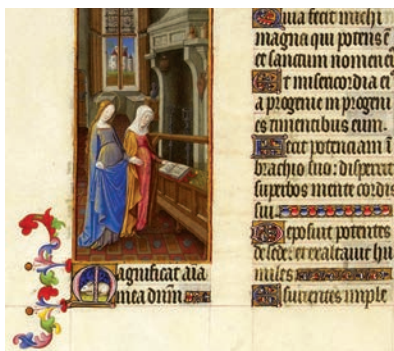 Magnificat aīa
mea dn̄m
Quia fecit michi
magna qui potens ē
et sanctum nomen ei
Et misericordia ei
a progenie in progeni
es timentibus eum.
Fecit potenciam ī
brachio suo: dispersit
superbos mente cordis
sui.
Deposuit potentes
de sede: et exaltauit hu
miles
Esurientes imple